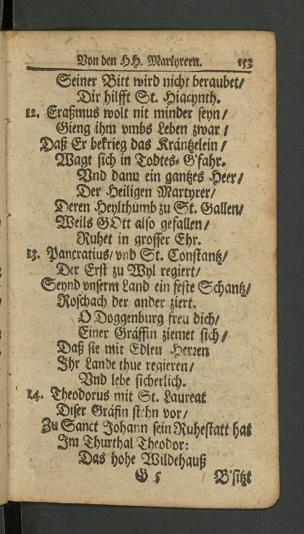 Von den H.H. Martyrern. 153
Seiner Bitt wird nicht beraubet/
Dir hilfft St. Hiacynth.
12. Eraßmus wolt nit minder seyn/
Gieng ihm vmbs Leben zwar/
Daß Er bekrieg das Kräntzelein/
Wagt sich in Todtes-G'fahr.
Vnd dann ein gantzes Heer/
Der Heiligen Martyrer/
Deren Heylthumb zu St. Gallen/
Weils GOtt also gefallen/
Ruhet in grosser Ehr.
13. Pancratius/ vnd St. Constantz/
Der Erst zu Wyl regiert/
Seynd vnserm Land ein feste Schantz/
Roschach der ander ziert.
O Doggenburg freu dich/
Einer Gräffin ziemet sich/
Daß sie mit Edlen Herzen
Ihr Lande thue regieren/
Vnd lebe sicherlich.
14. Theodorus mit St. Laureat
Diser Gräfin stehn vor/
Zu Sanct Johann sein Ruhestatt hat
Im Thurthal Theodor:
Das hohe Wildehauß
G 5 B'sitzt